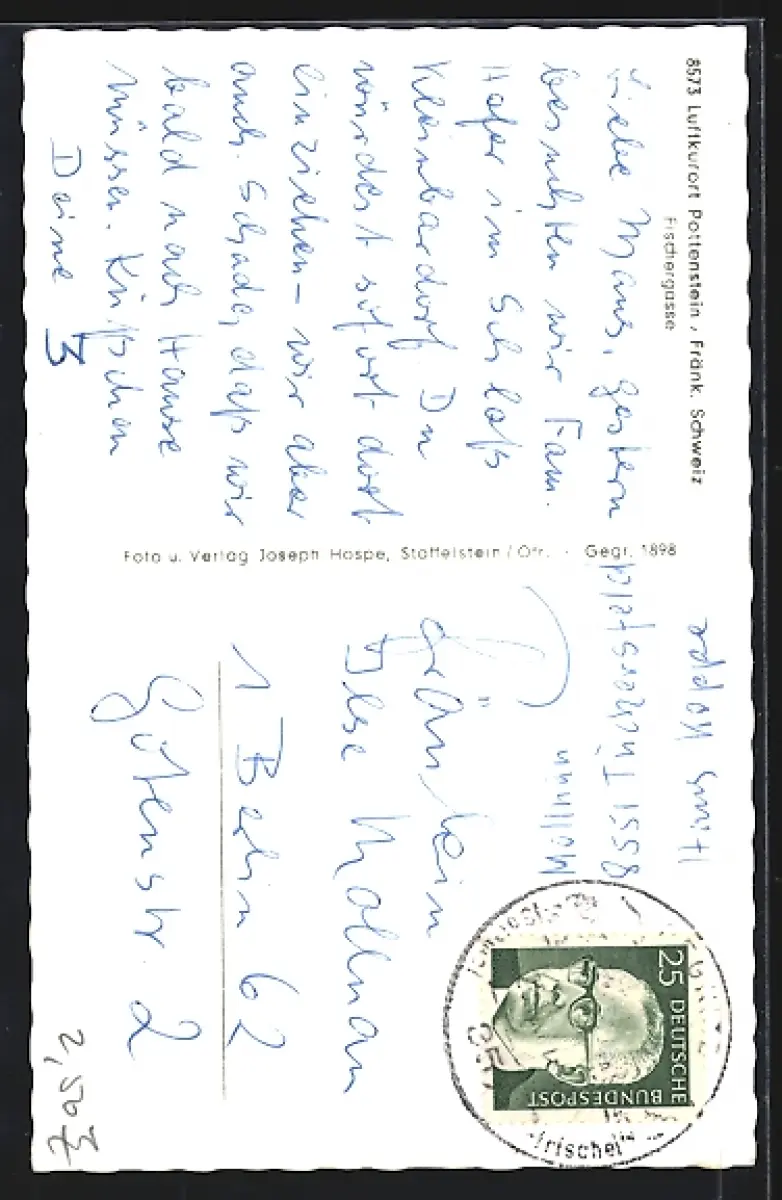 8573 Luftkurort Pottenstein, Fränk. Schweiz
Fischergasse
Liebe Maus, gestern
besuchten wir Fam.
Hofer im Schloß
Kleinbardorf Du
würdest sofort dort
einziehen - wir aber
auch. Schade, daß wir
bald nach Hause
müssen. Küßchen
Deine
Foto u. Verlag Joseph Hospe, Staffelstein/Ofr. · Gegr. 1898
Hoppe
8551
Fräulein
Ilse Mollman
1 Berlin 62
Gotenstr. 2
25 DEUTSCHE
BUNDESPOST